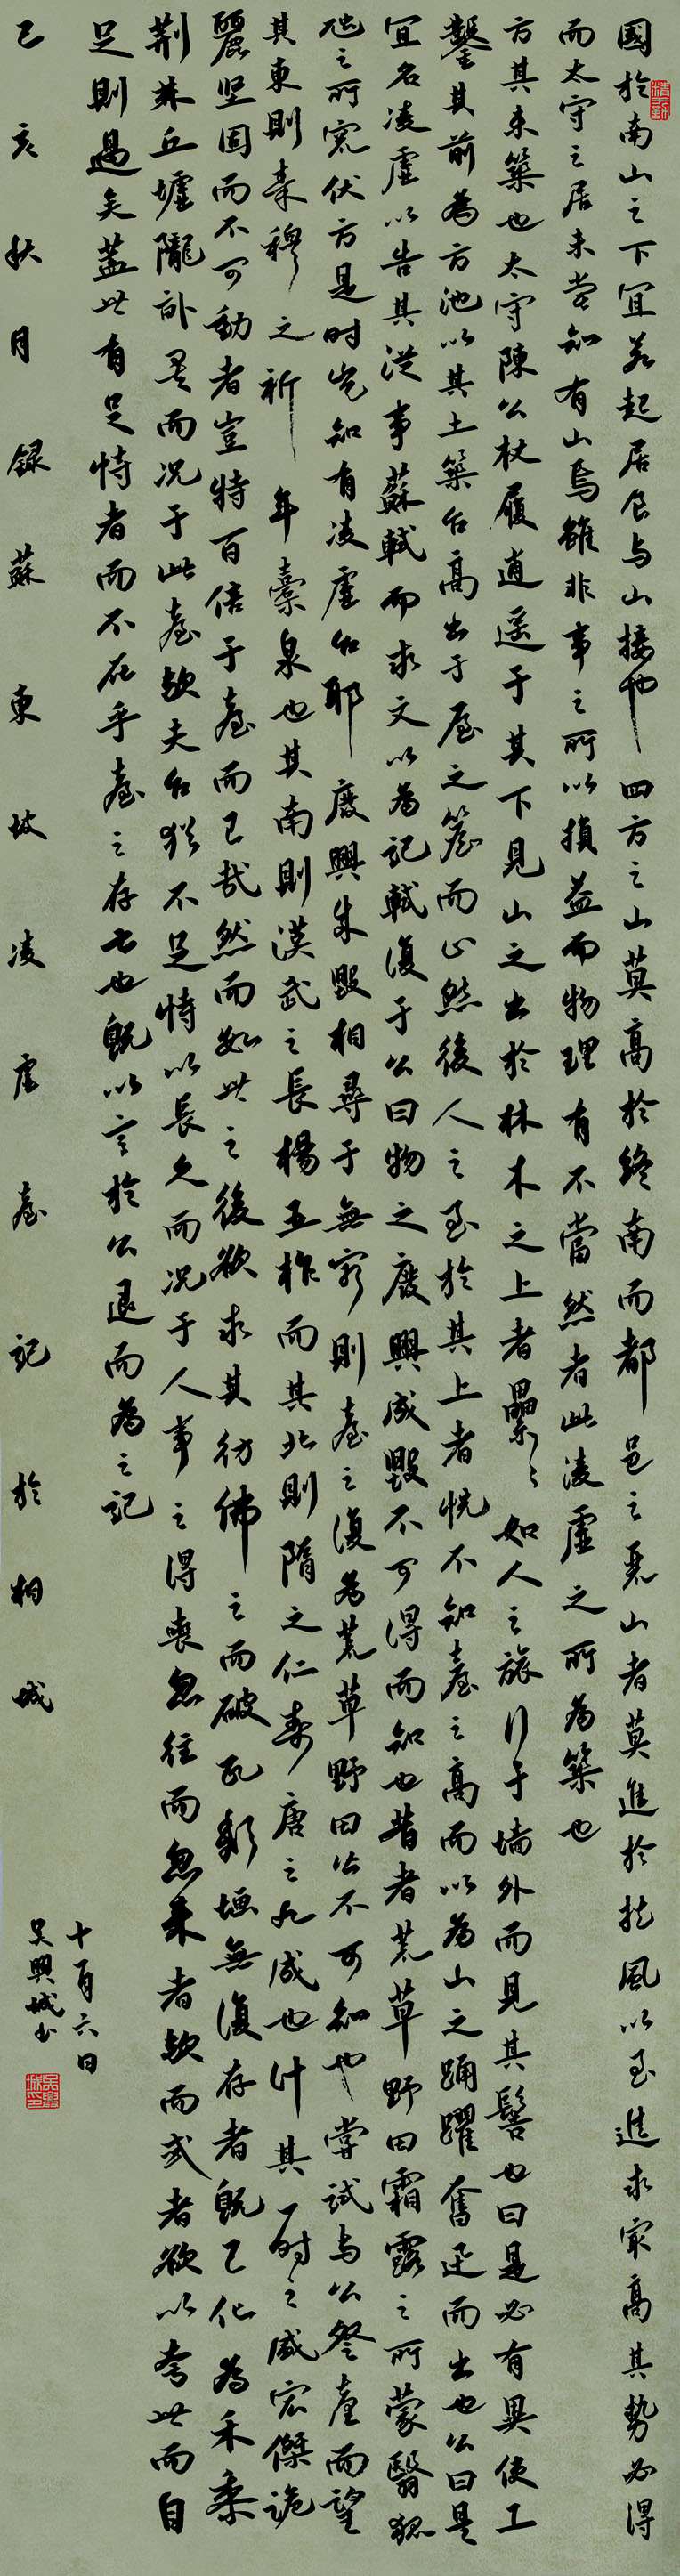 國於南山之下宜若起居飲食與山接也四方之山莫高於終南而都邑之麗山者莫近於扶風以至近求最高其勢必得
而太守之居未嘗知有山焉雖非事之所以損益而物理有不當然者此凌虛之所為築也
方其未築也太守陳公杖履逍遙于其下見山之出於林木之上者纍纍如人之旅行于墻外而見其髻也曰是必有異使工
鑿其前為方池以其土築台高出于屋之簷而止然後人之至於其上者恍不知臺之高而以為山之踴躍奮迅而出也公曰是
宜名凌虛以告其從事蘇軾而求文以為記軾復于公曰物之廢興成毀不可得而知也昔者荒草野田霜露之所蒙翳狐
虺之所竄伏方是时岂知有凌虛台耶廢興成毀相尋于無窮則臺之復為荒草野田皆不可知也嘗試与公登臺而望
其東則秦穆之祈年橐泉也其南則漢武之長楊五柞而其北則隋之仁壽唐之九成也计其一时之盛宏傑詭
麗坚固而不可動者豈特百倍于臺而已哉然而數世之後欲求其彷彿之而破瓦頹垣無復存者既已化為禾黍
荊棘丘墟隴畝矣而况于此臺歟夫台猶不足恃以長久而况于人事之得喪忽往而忽來者歟而或者欲以夸世而自
足則過矣蓋世有足恃者而不在乎臺之存亡也既以言於公退而為之記
己亥秋月録蘇東坡凌虛臺記於相城
十一月六日
吴興城书